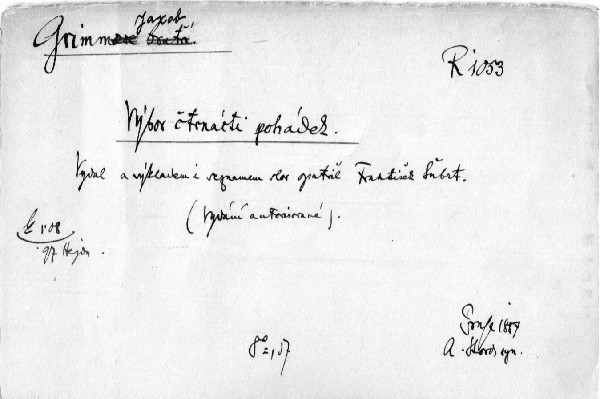 Jakob
Grimmově bratří.
R 1053
Výbor čtrnácti pohádek.
Vydal a výkladem i seznamem slov opatřil František Šubrt.
(Vydání autorisované).
1.08
97 Hejdu.
8° 57
Praha 1887
A. Storch syn.